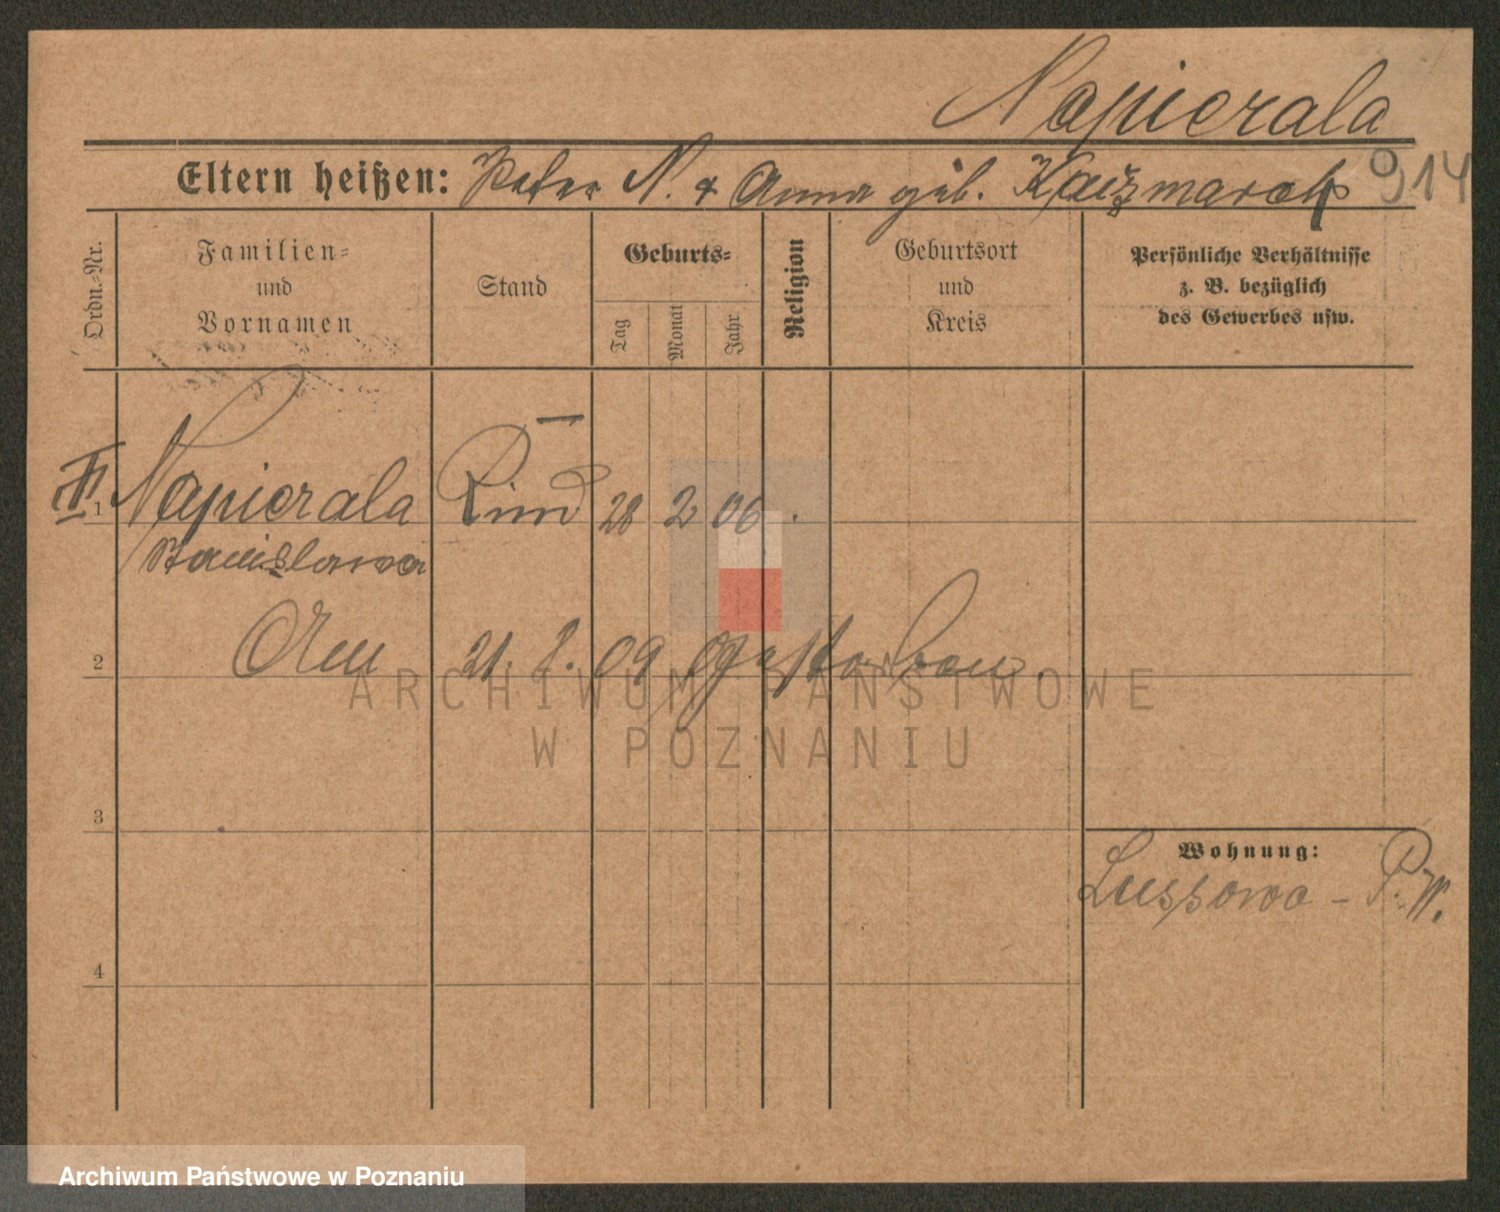 Napierala
Eltern heißen: Peter N. & Anna geb. Kaczmarek 914
Ordn.-Nr.
Familien-
und
Vornamen
Stand
Geburts-
Tag
Monat
Jahr
Religion
Geburtsort
und
Kreis
Persönliche Verhältnisse
z. B. bezüglich
des Gewerbes usw.
II 1 Napierala Kind 28 2 06.
Stanislawa
2 Am 21. 8. 09 gestorben.
3
4
Wohnung:
Lussowo - P. W.
ARCHIWUM PAŃSTWOWE
W POZNANIU
Archiwum Państwowe w Poznaniu